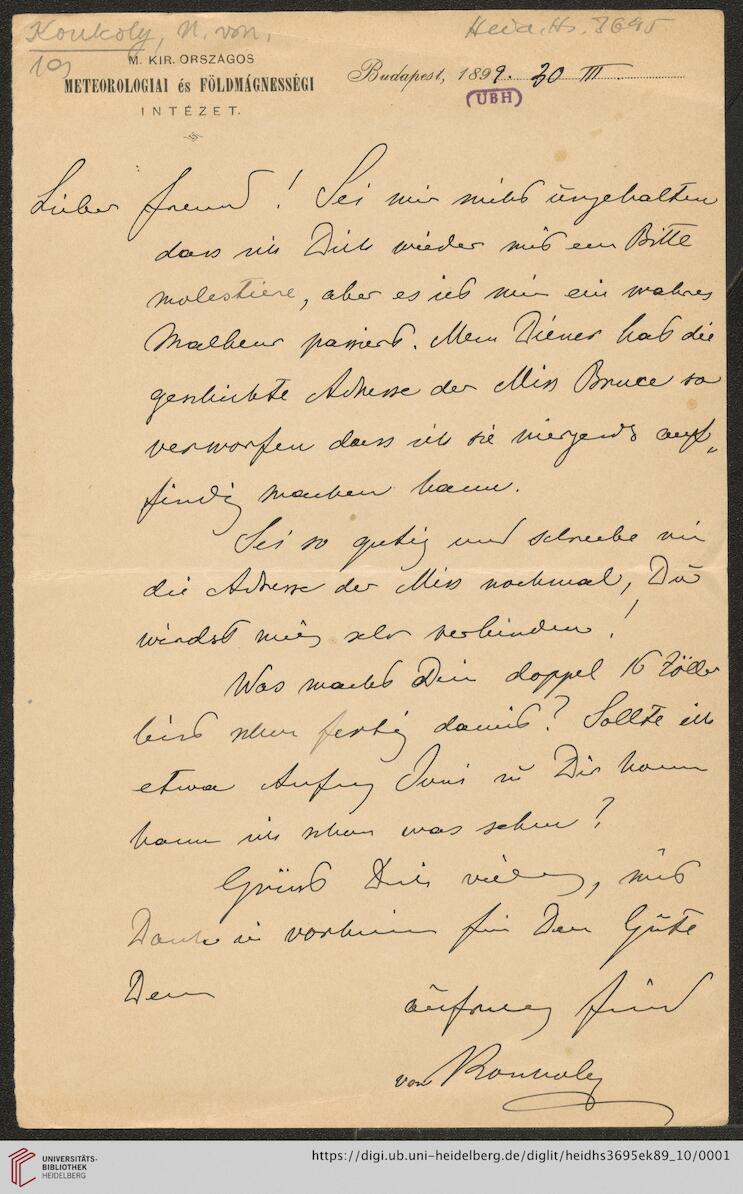 Konkoly, N. von.
Heid. Hs. 3695
10)
M. KIR. ORSZÁGOS
METEOROLOGIAI és FÖLDMÁGNESSÉGI
INTÉZET.
Budapest, 1899. 30 III.
(UBH)
Lieber Freund! Sei mir nicht ungehalten
dass ich Dich wieder mit einer Bitte
molestiere, aber es ist mir ein wahres
Malheur passiert. Mein Diener hat die
geschickte Adresse der Miss Bruce so
verworfen dass ich sie niergends auf„
findig machen kann.
Sei so gutig und schreibe mir
die Adresse der Miss nochmal, Du
wirdst mich sehr verbinden!
Was macht Dein doppel 16 Zöller
bist schon fertig damit? Sollte ich
etwa Anfang Juni zu Dir kommen
kann ich schon was sehen?
Grüsst Dich vielmals, mit
Dank in vorhinein für Deine Güte
Dein
aufrichtig Freund
von Konkoly
UNIVERSITÄTS-
BIBLIOTHEK
HEIDELBERG
https://digi.ub.uni-heidelberg.de/diglit/heidhs3695ek89_10/0001